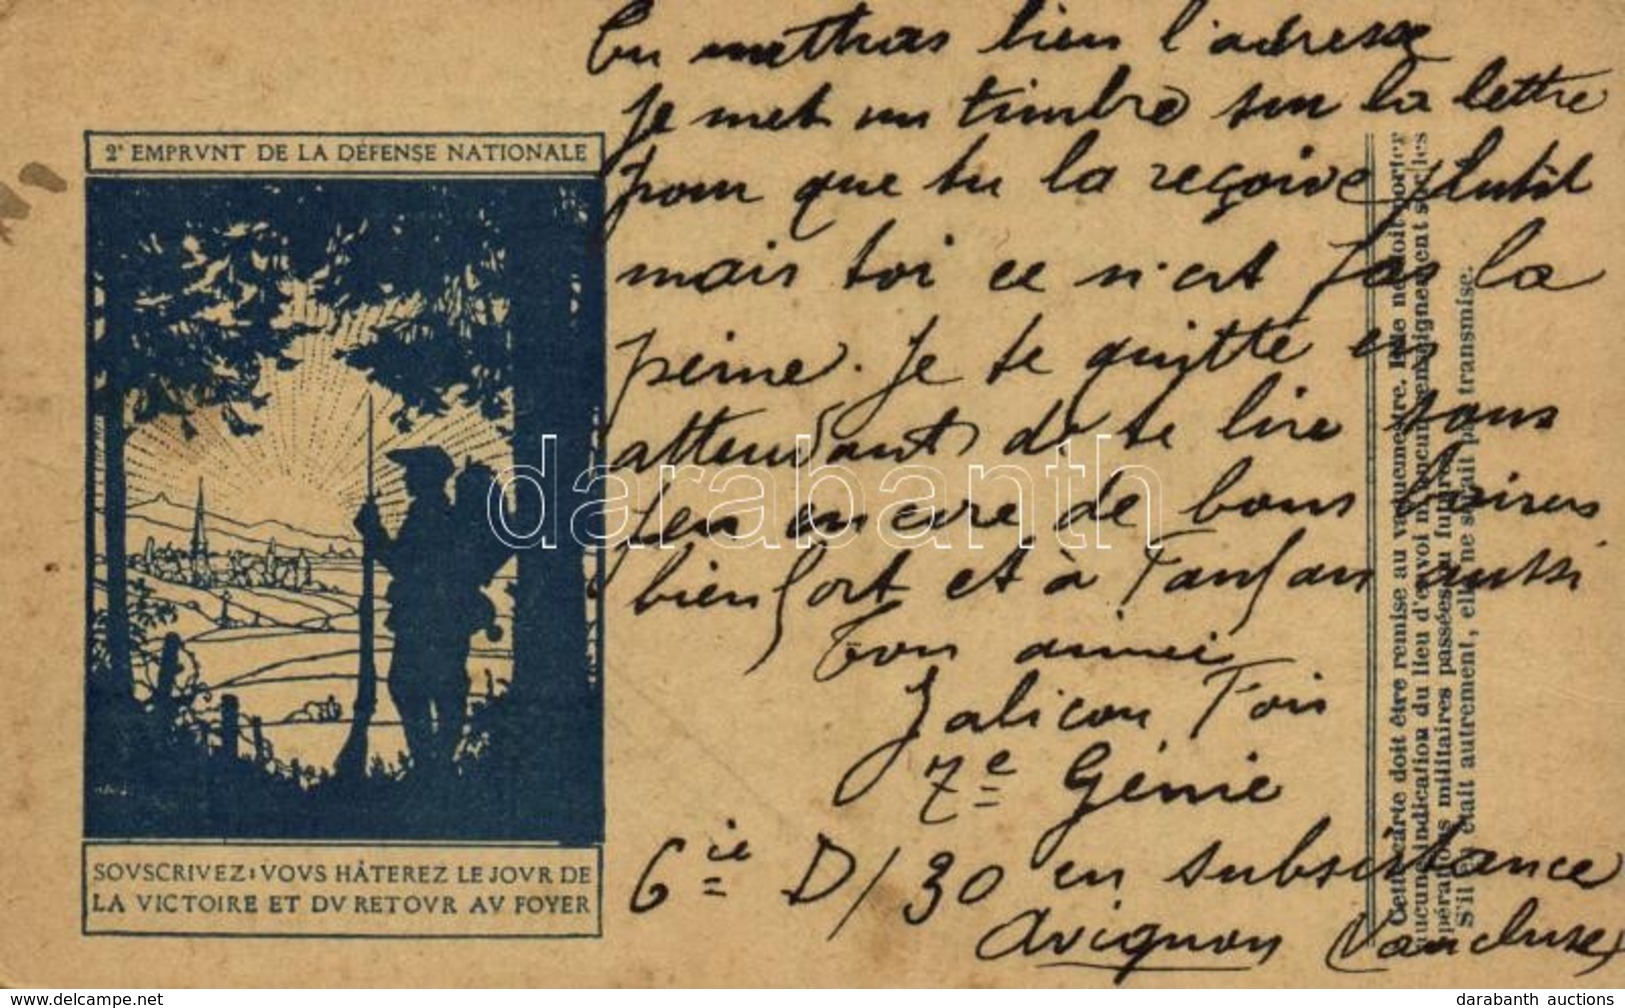 2e EMPRVNT DE LA DÉFENSE NATIONALE
SOVSCRIVEZ: VOVS HÂTEREZ LE JOVR DE
LA VICTOIRE ET DV RETOVR AV FOYER
Tu metthras bien l'adresse
je met un timbre sur la lettre
pour que tu la reçoive plutôt
mais toi ce n'est pas la
peine. Je te quitte en
attendant de te lire sous
peu encore de bons baisers
bien fort et à Fanfan aussi
Ton aimei
7e Génie
6cie D/30 en subsistance
Avignon (Vaucluse)
Cette carte doit être remise au vaguemestre. Elle ne doit porter
aucune indication du lieu d'envoi ni aucun renseignement sur les
opérations militaires passées ou futures.
S'il en était autrement, elle ne serait pas transmise.
darabanth
darabanth auctions
www.delcampe.net